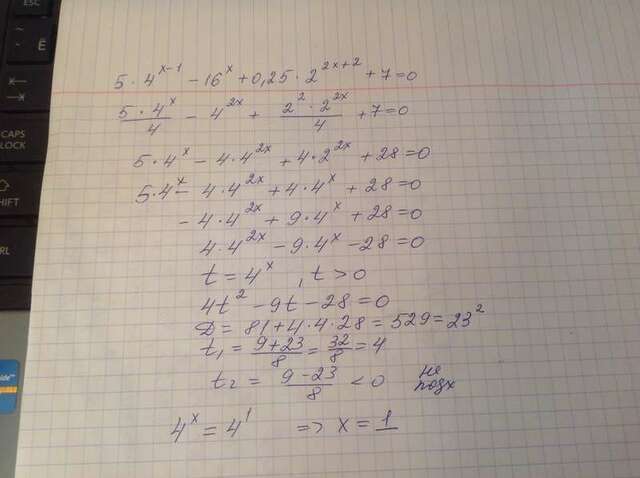 ESC
Ё
CAPS
LOCK
5·4^(x-1) - 16^x + 0,25·2^(2x+2) + 7 = 0
5·4^x/4 - 4^(2x) + 2^2·2^(2x)/4 + 7 = 0
5·4^x - 4·4^(2x) + 4·2^(2x) + 28 = 0
5·4^x - 4·4^(2x) + 4·4^x + 28 = 0
- 4·4^(2x) + 9·4^x + 28 = 0
4·4^(2x) - 9·4^x - 28 = 0
t = 4^x , t > 0
4t^2 - 9t - 28 = 0
D = 81 + 4·4·28 = 529 = 23^2
t₁ = (9+23)/8 = 32/8 = 4
t₂ = (9-23)/8 < 0 не
подх
4^x = 4^1 => x = 1